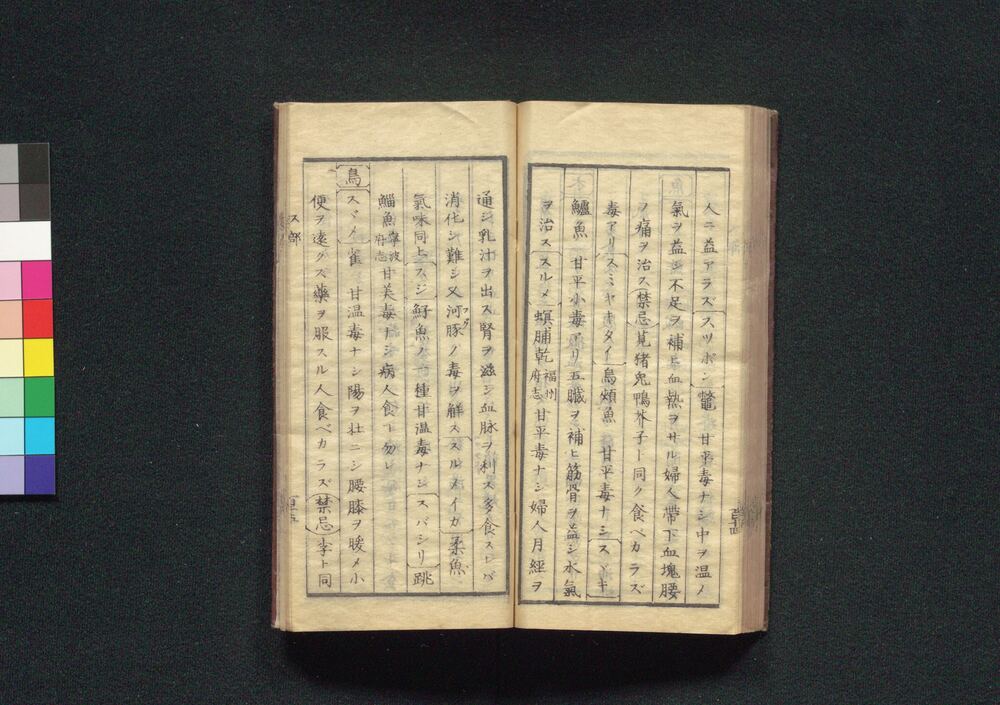 人ニ益アラズスツポン鼈 甘平毒ナシ中ヲ温メ
氣ヲ益シ不足ヲ補ヒ血熱ヲサル婦人帶下血塊腰
ノ痛ヲ治ス禁忌莧猪兎鴨芥子ト同ク食ベカラズ
毒アリスミヤキタイ烏頰魚 甘平毒ナシスヾキ
鱸魚 甘平小毒アリ五臓ヲ補ヒ筋骨ヲ益シ水氣
ヲ治ススルメ螟脯乾福州府志甘平毒ナシ婦人月經ヲ
百五十四
通シ乳汁ヲ出ス腎ヲ滋シ血脉ヲ利ス多食スレバ
消化シ難シ又河豚フグノ毒ヲ解ススルメイカ柔魚
氣味同上スジ 魚ノ一種甘温毒ナシスバシリ跳
鯔魚寧波府志甘美毒ナシ病人食ト勿レ
鳥スヾメ雀 甘温毒ナシ陽ヲ壮ニシ腰膝ヲ暖メ小
便ヲ遠クス藥ヲ服スル人食ベカラズ禁忌李ト同
ス部